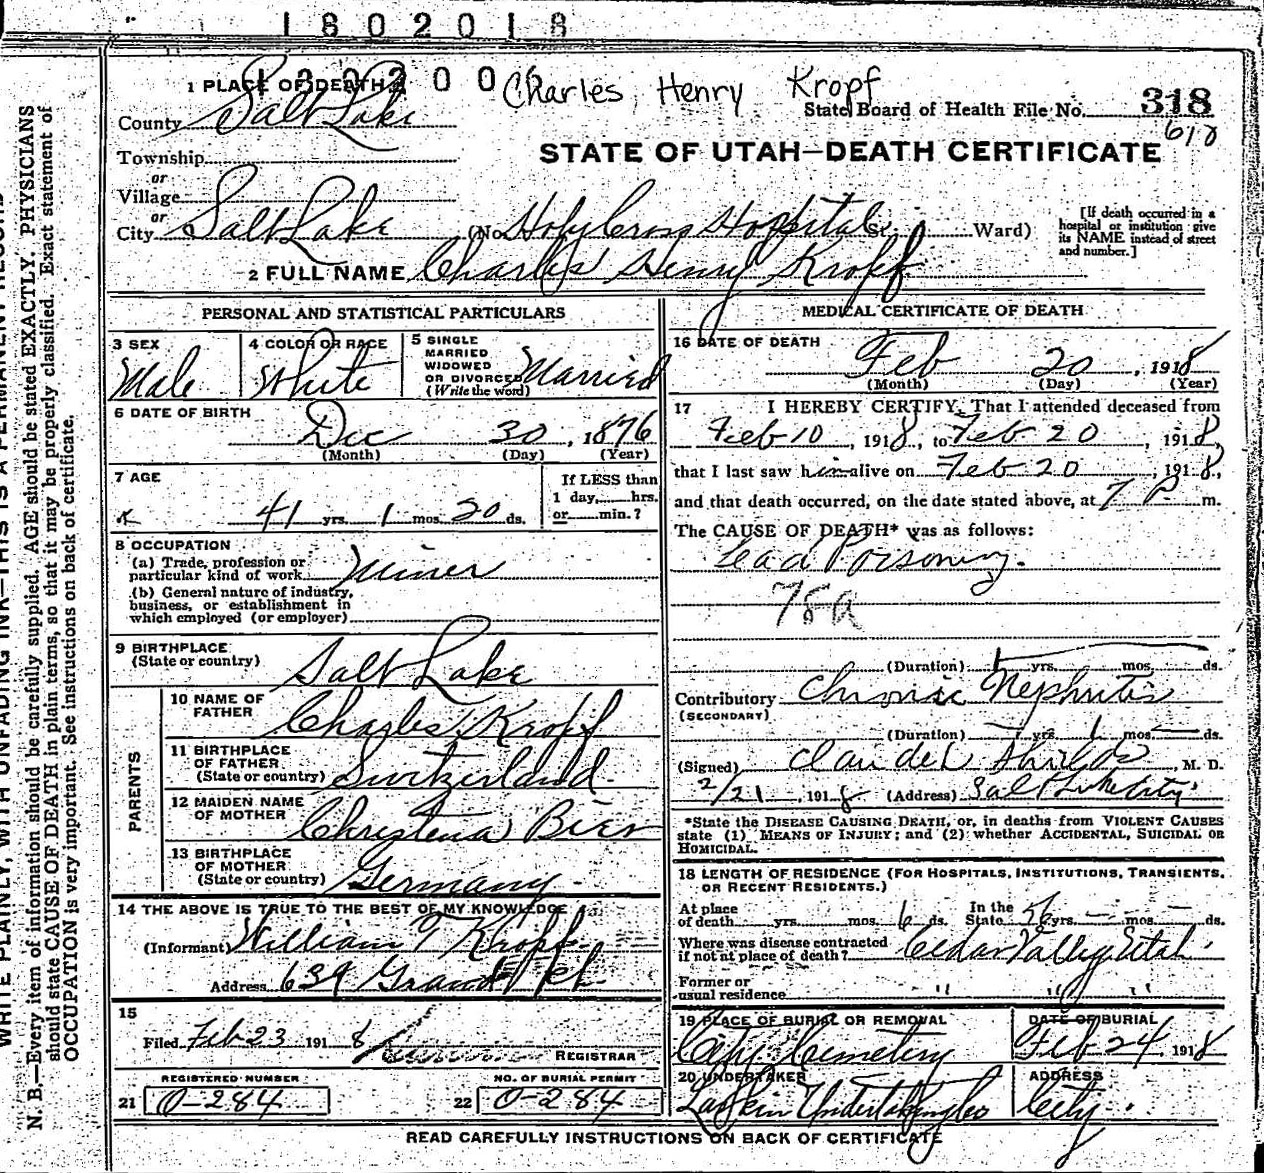 1802018
1 PLACE OF DEATH 130200 Charles, Henry Kropf
County Salt Lake
State Board of Health File No. 318
618
Township
or
Village
or
STATE OF UTAH—DEATH CERTIFICATE
City Salt Lake (No. Holy Cross Hospital St. Ward)
[If death occurred in a hospital or institution give its NAME instead of street and number.]
2 FULL NAME Charles Henry Kropf
PERSONAL AND STATISTICAL PARTICULARS
3 SEX Male
4 COLOR OR RACE White
5 SINGLE
MARRIED
WIDOWED
OR DIVORCED Married
(Write the word)
6 DATE OF BIRTH
Dec 30, 1876
(Month) (Day) (Year)
7 AGE
41 yrs. 1 mos. 20 ds.
If LESS than
1 day, hrs.
or min.?
8 OCCUPATION
(a) Trade, profession or
particular kind of work Miner
(b) General nature of industry,
business, or establishment in
which employed (or employer)
9 BIRTHPLACE
(State or country) Salt Lake
PARENTS
10 NAME OF
FATHER Charles Kropf
11 BIRTHPLACE
OF FATHER
(State or country) Switzerland
12 MAIDEN NAME
OF MOTHER Christena Bier
13 BIRTHPLACE
OF MOTHER
(State or country) Germany
14 THE ABOVE IS TRUE TO THE BEST OF MY KNOWLEDGE
(Informant) William Kropf
Address 639 Grand
15
Filed Feb 23 1918
REGISTRAR
REGISTERED NUMBER
21 0-284
NO. OF BURIAL PERMIT
22 0-284
MEDICAL CERTIFICATE OF DEATH
16 DATE OF DEATH
Feb 20, 1918
(Month) (Day) (Year)
17 I HEREBY CERTIFY, That I attended deceased from
Feb 10, 1918, to Feb 20, 1918,
that I last saw him alive on Feb 20, 1918,
and that death occurred, on the date stated above, at 7 P m.
The CAUSE OF DEATH* was as follows:
Lead Poisoning.
78a
(Duration) 1 yrs. mos. ds.
Contributory Chronic Nephritis
(SECONDARY)
(Duration) yrs. 1 mos. ds.
(Signed) M. D.
2/21, 1918 (Address) Salt Lake City
*State the DISEASE CAUSING DEATH, or, in deaths from VIOLENT CAUSES
state (1) MEANS OF INJURY; and (2) whether ACCIDENTAL, SUICIDAL OR
HOMICIDAL.
18 LENGTH OF RESIDENCE (FOR HOSPITALS, INSTITUTIONS, TRANSIENTS,
OR RECENT RESIDENTS.)
At place
of death yrs. mos. 6 ds. In the
State yrs. mos. ds.
Where was disease contracted
if not at place of death? Cedar Valley Utah
Former or
usual residence " " "
19 PLACE OF BURIAL OR REMOVAL
City Cemetery
DATE OF BURIAL
Feb 24 1918
20 UNDERTAKER
Larkin Undertaking Co
ADDRESS
City.
READ CAREFULLY INSTRUCTIONS ON BACK OF CERTIFICATE
WRITE PLAINLY, WITH UNFADING INK—THIS IS A PERMANENT RECORD
N. B.—Every item of information should be carefully supplied. AGE should be stated EXACTLY. PHYSICIANS
should state CAUSE OF DEATH in plain terms, so that it may be properly classified. Exact statement of
OCCUPATION is very important. See instructions on back of certificate.